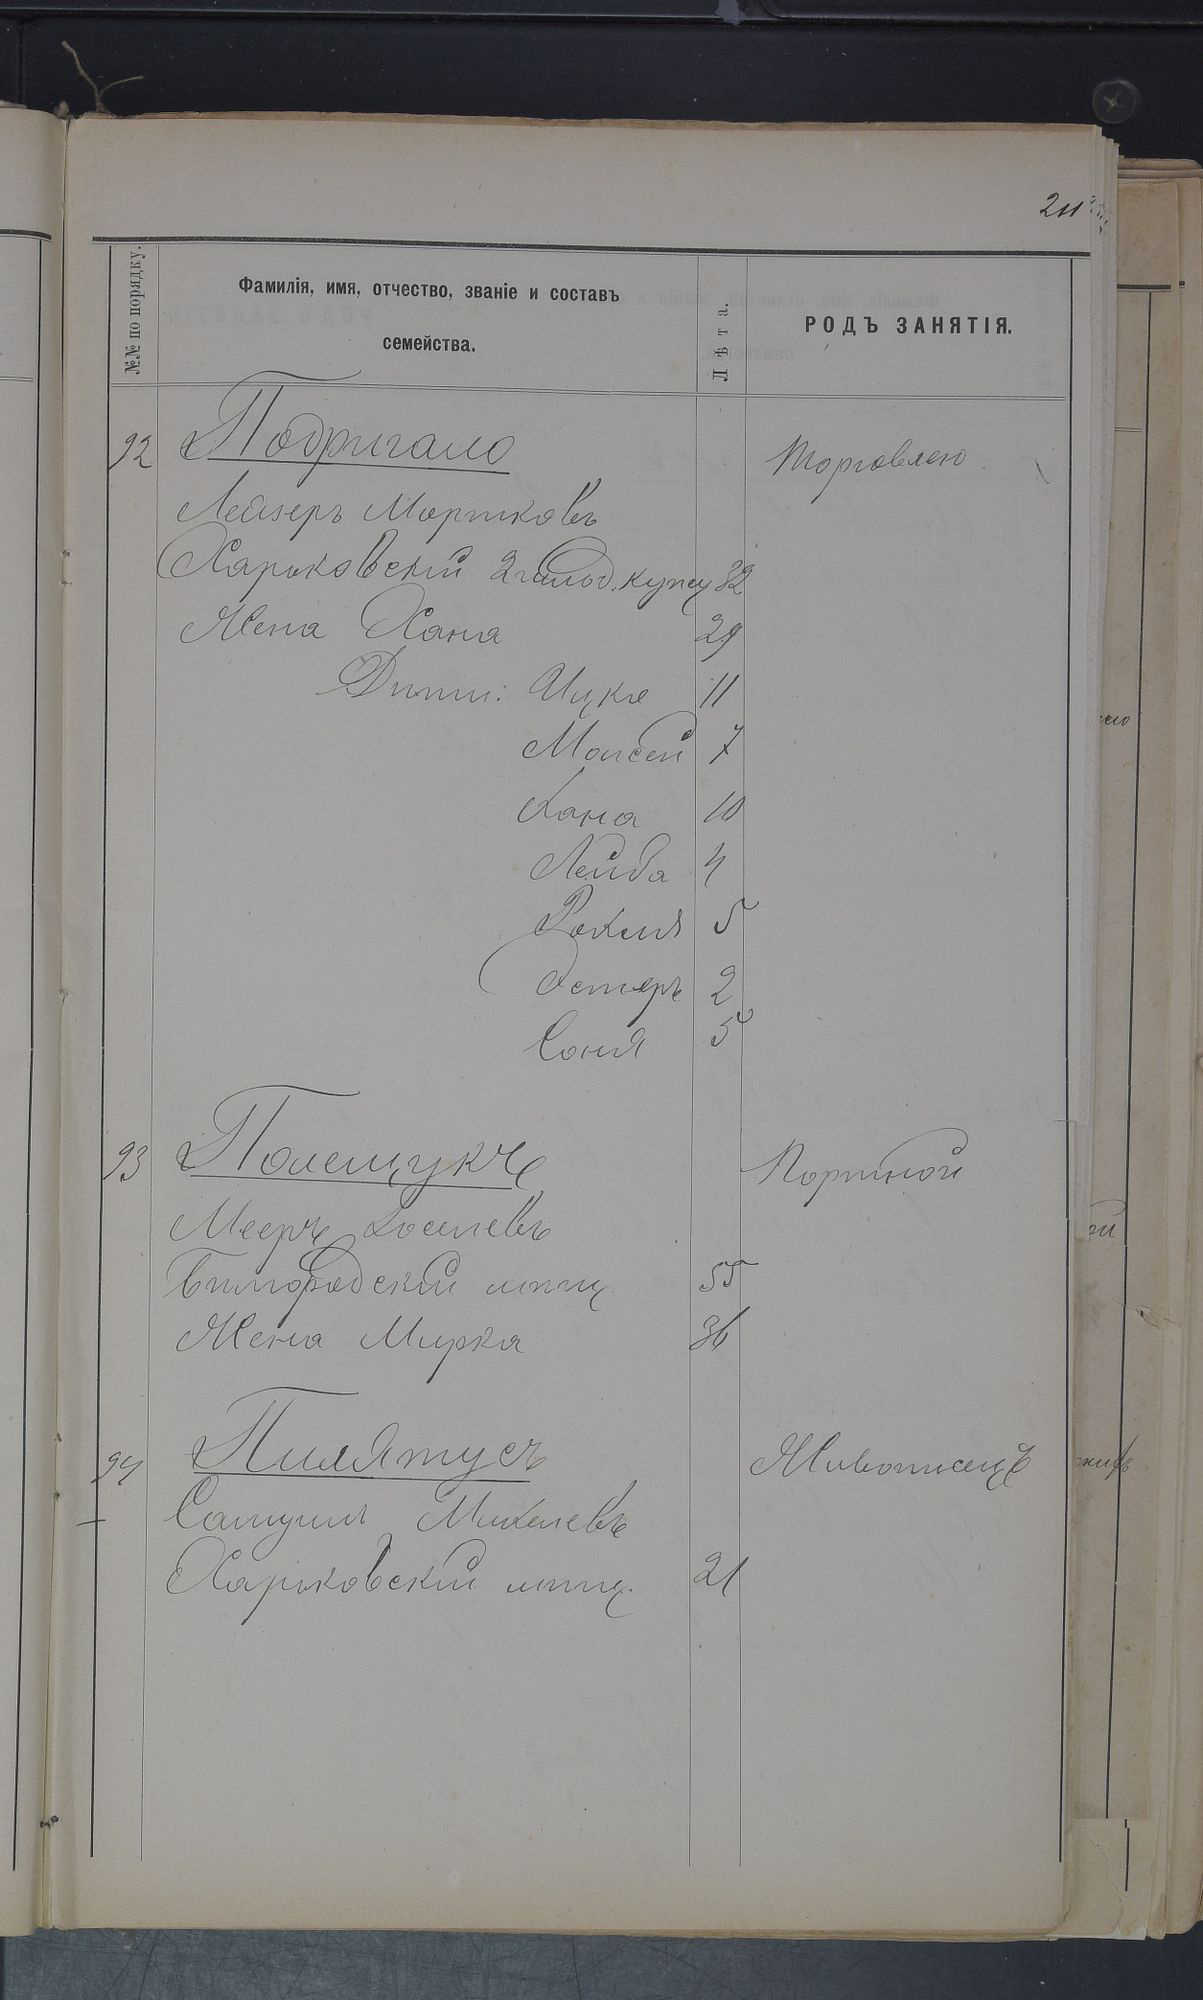 211
№№ по порядку.
Фамилія, имя, отчество, званіе и составъ
семейства.
Лѣта.
РОДЪ ЗАНЯТІЯ.
92 Подригало Торговлею
Лейзеръ Мортковъ
Харьковскій 2 гильд. купец 32
Жена Хана 29
Дѣти: Ицко 11
Моисей 7
Хана 10
Лейба 4
Рохля 5
Эстеръ 2
Соня 5
93 Полещукъ Портной
Мееръ Іоселевъ
Бѣлгородскій мѣщ. 55
Жена Мирка 36
94 Пилятусъ Живописецъ
Самуилъ Михелевъ
Харьковскій мѣщ. 21